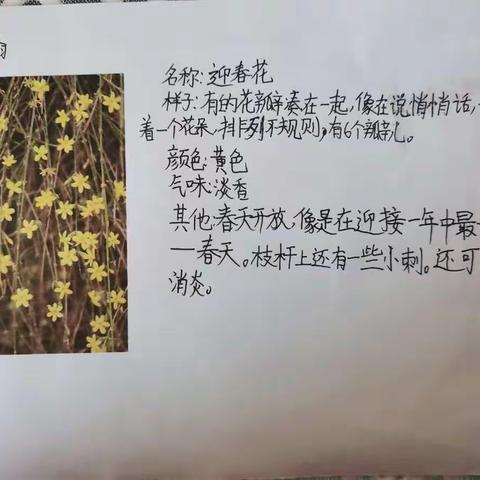 名称:迎春花
样子:有的花瓣凑在一起,像在说悄悄话,
着一个花朵,排列不规则,有6个瓣儿。
颜色:黄色
气味:淡香
其他:春天开放,像是在迎接一年中最
——春天。枝杆上还有一些小刺。还可
消炎。